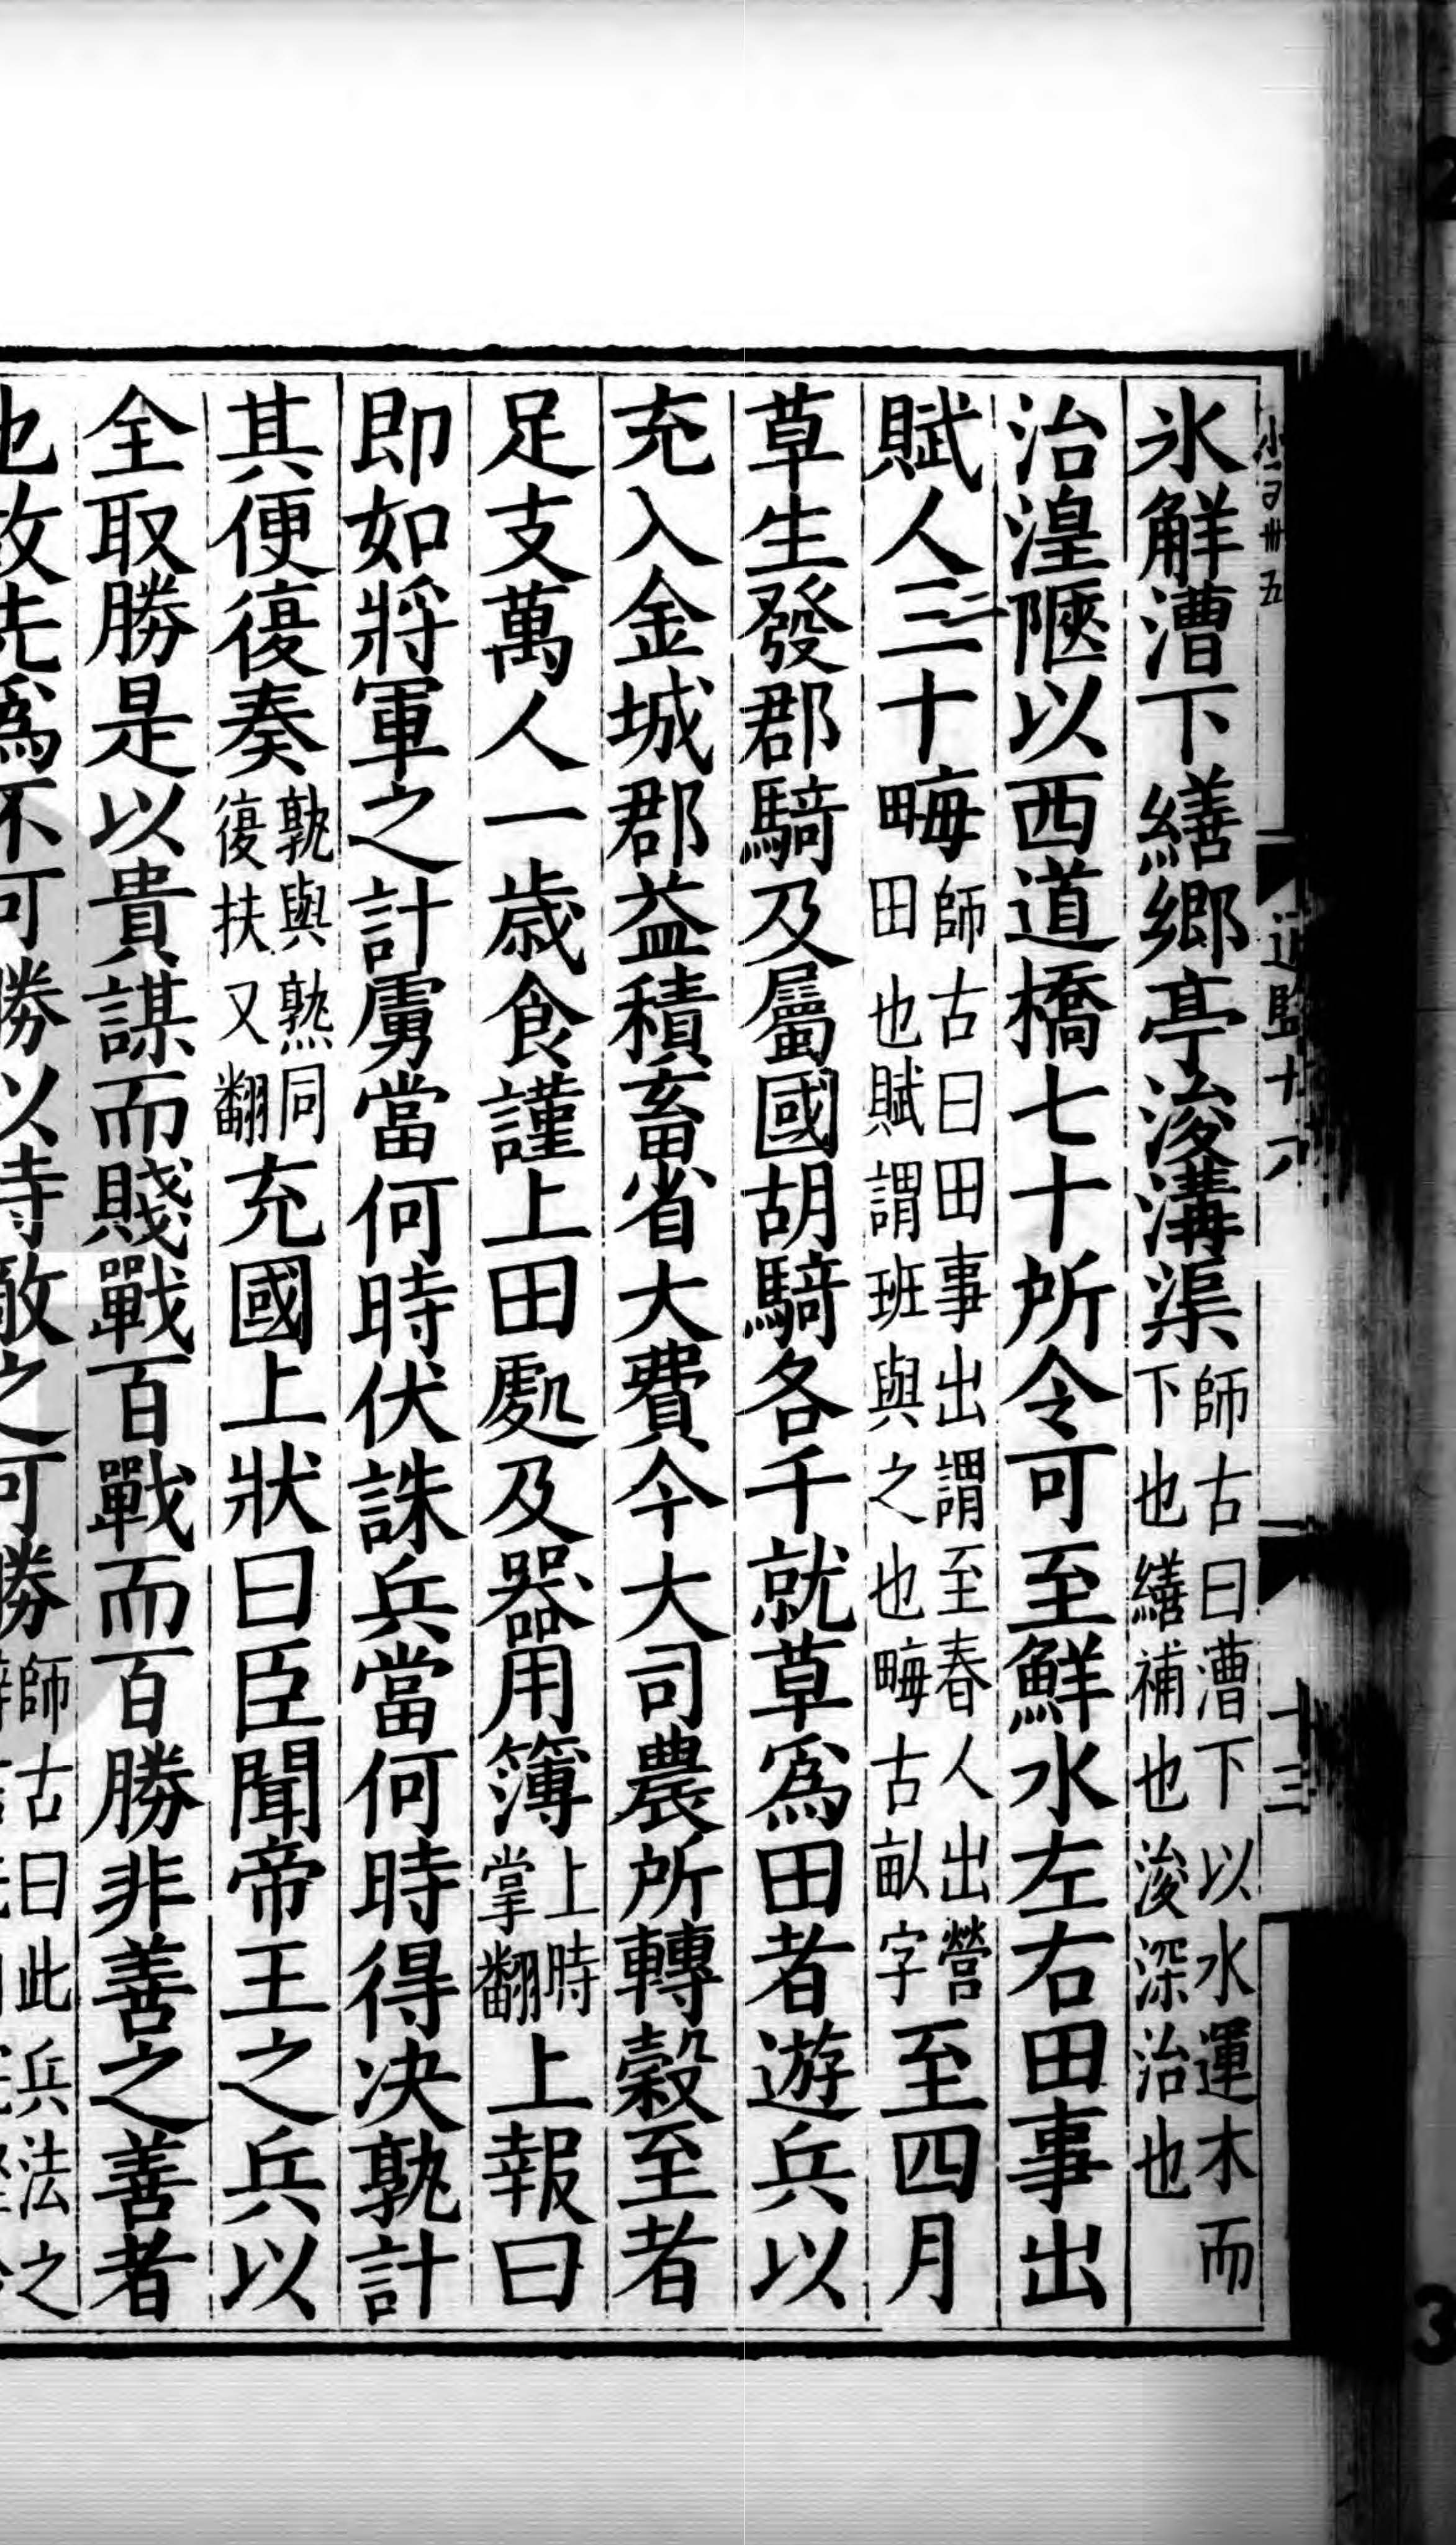 氷解漕下繕郷亭浚溝渠師古曰漕下以水運木而下也繕補也浚深治也
治湟陿以西道橋七十所令可至鮮水左右田事出
賦人三十畮師古曰田事出謂至春人出營田也賦謂班與之也畮古畝字至四月
草生發郡騎及屬國胡騎各千就草爲田者遊兵以
充入金城郡益積畜省大費今大司農所轉穀至者
足支萬人一歳食謹上田處及器用簿上時掌翻上報曰
即如將軍之計虜當何時伏誅兵當何時得決孰計
其便復奏孰與熟同復扶又翻充國上狀曰臣聞帝王之兵以
全取勝是以貴謀而賤戰百戰而百勝非善之善者
也故先爲不可勝以待敵之可勝師古曰此兵法之